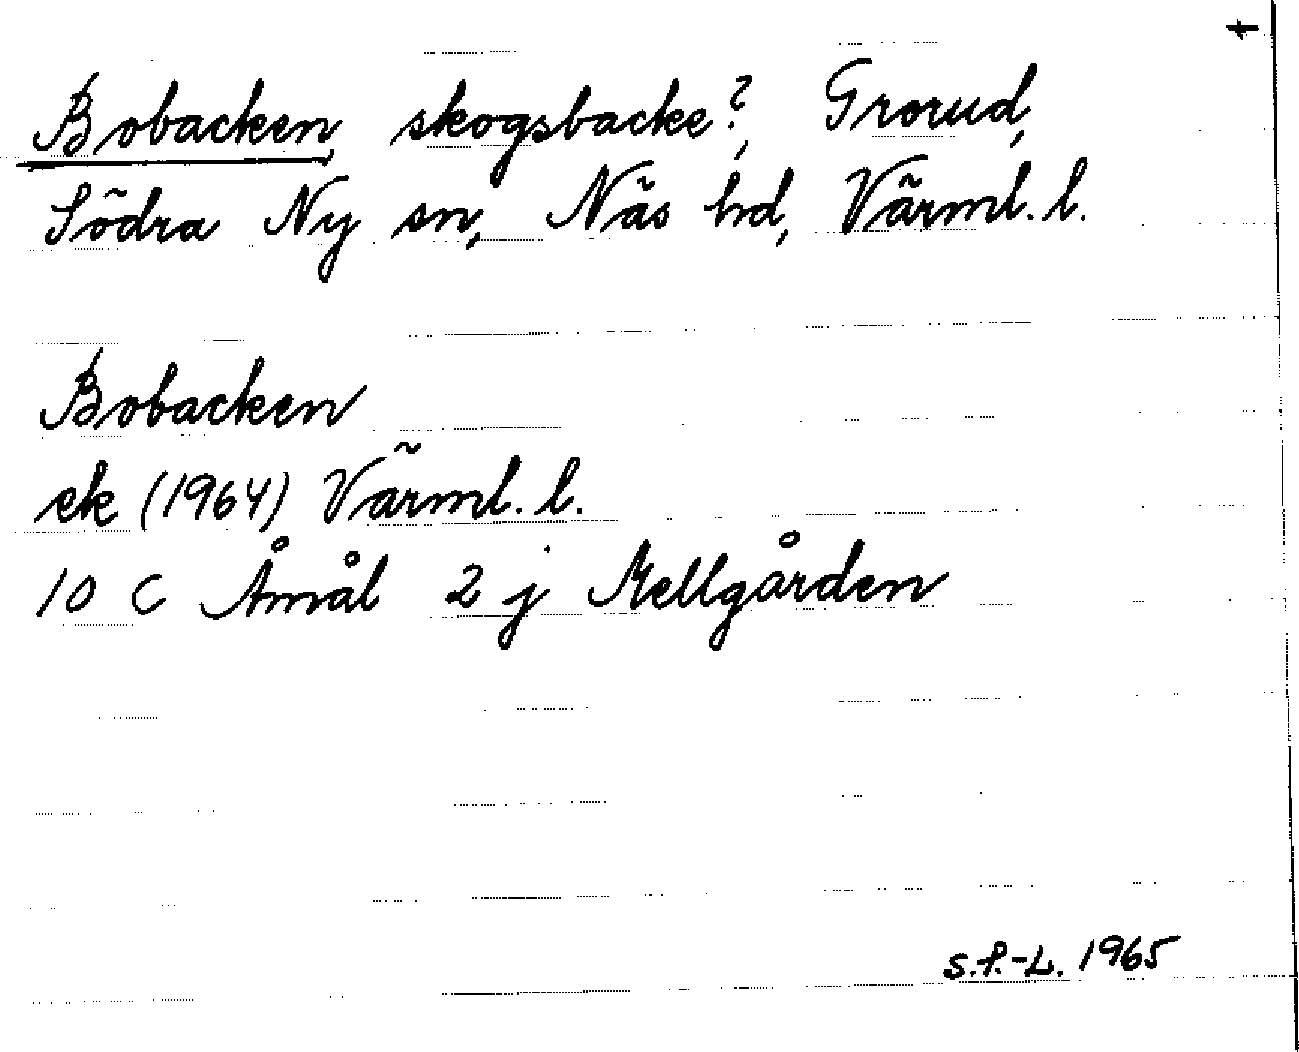 Bobacken, skogsbacke?, Grorud,
Södra Ny sn, Näs hd, Värml. l.
Bobacken
ek (1964) Värml. l.
10 C Åmål 2 j Mellgården
S.P.-L. 1965